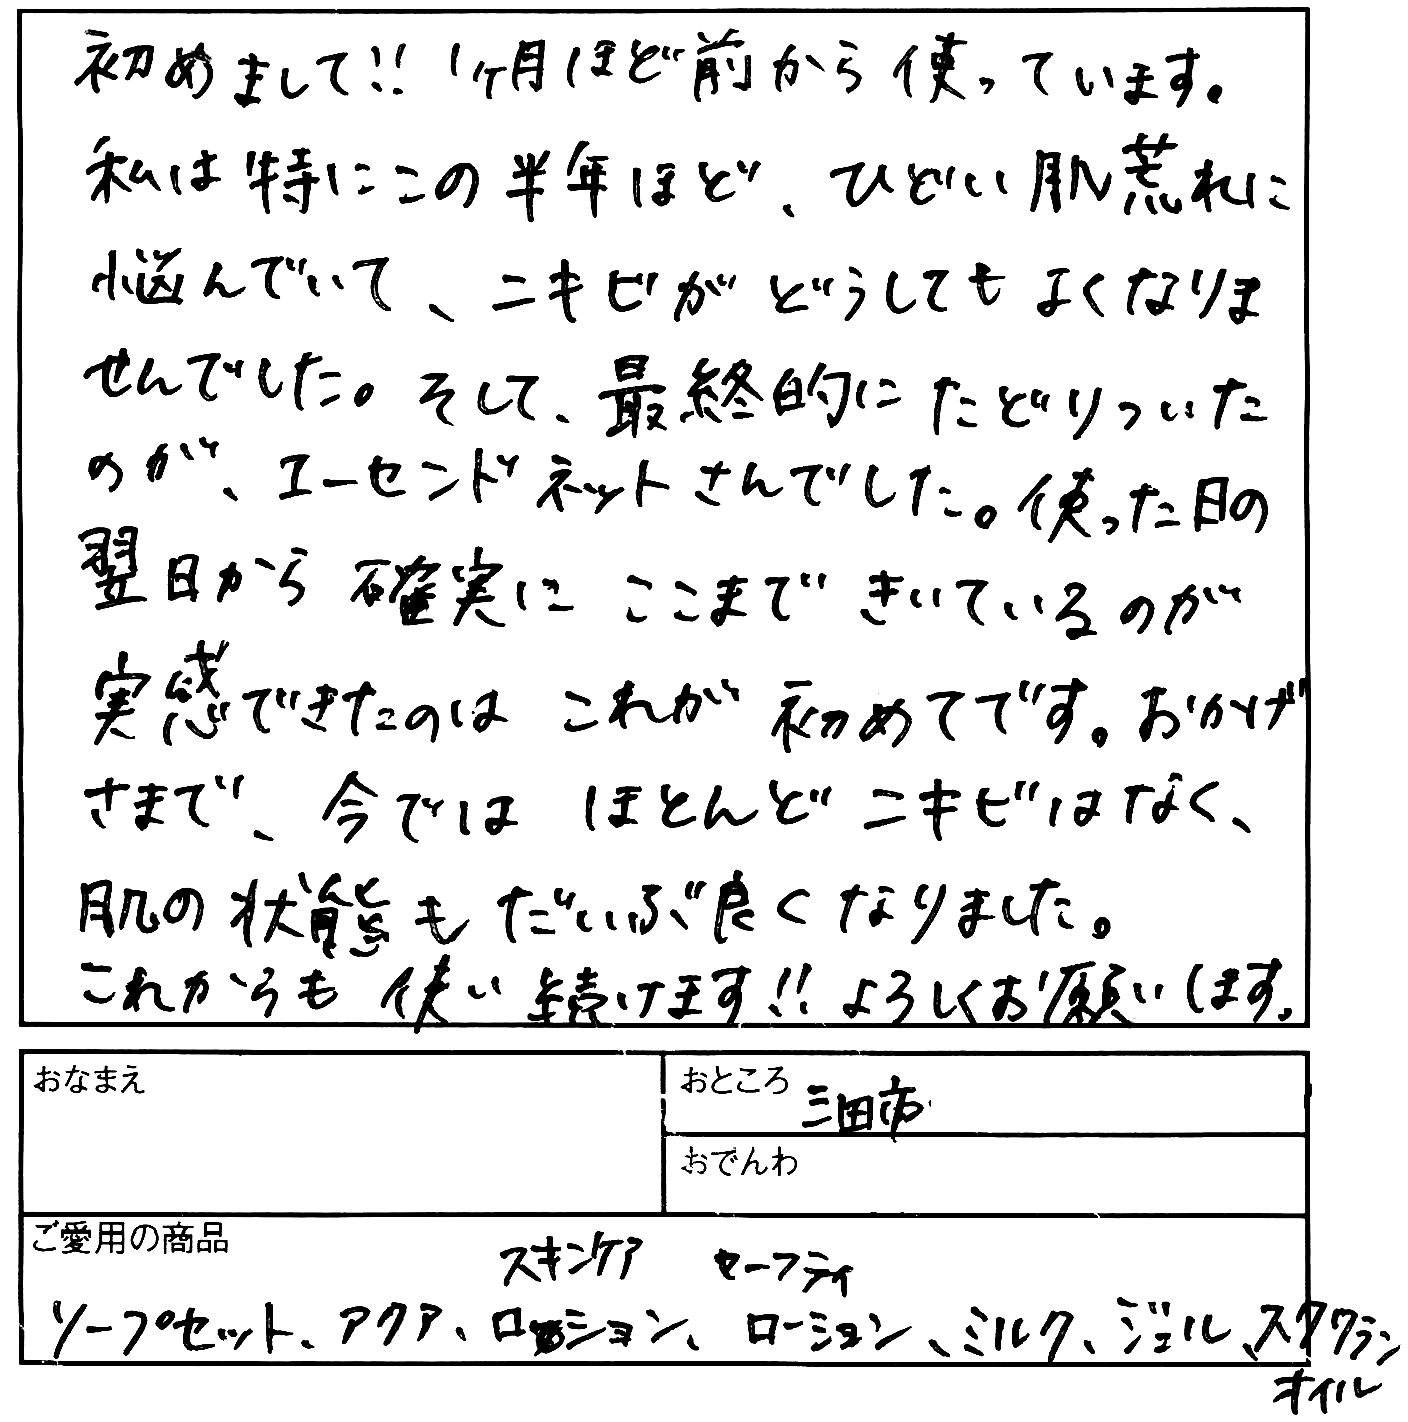 初めまして!! 1ヶ月ほど前から使っています。
私は特にこの半年ほど、ひどい肌荒れに
悩んでいて、ニキビがどうしてもよくなりま
せんでした。そして、最終的にたどりついた
のが、エーセンドネットさんでした。使った日の
翌日から確実にここまできいているのが
実感できたのはこれが初めてです。おかげ
さまで、今ではほとんどニキビはなく、
肌の状態もだいぶ良くなりました。
これからも使い続けます!! よろしくお願いします。
おなまえ
おところ 三田市
おでんわ
ご愛用の商品
スキンケア セーフティ
ソープセット、アクア、ローション、ローション、ミルク、ジェル、スクワラン
オイル